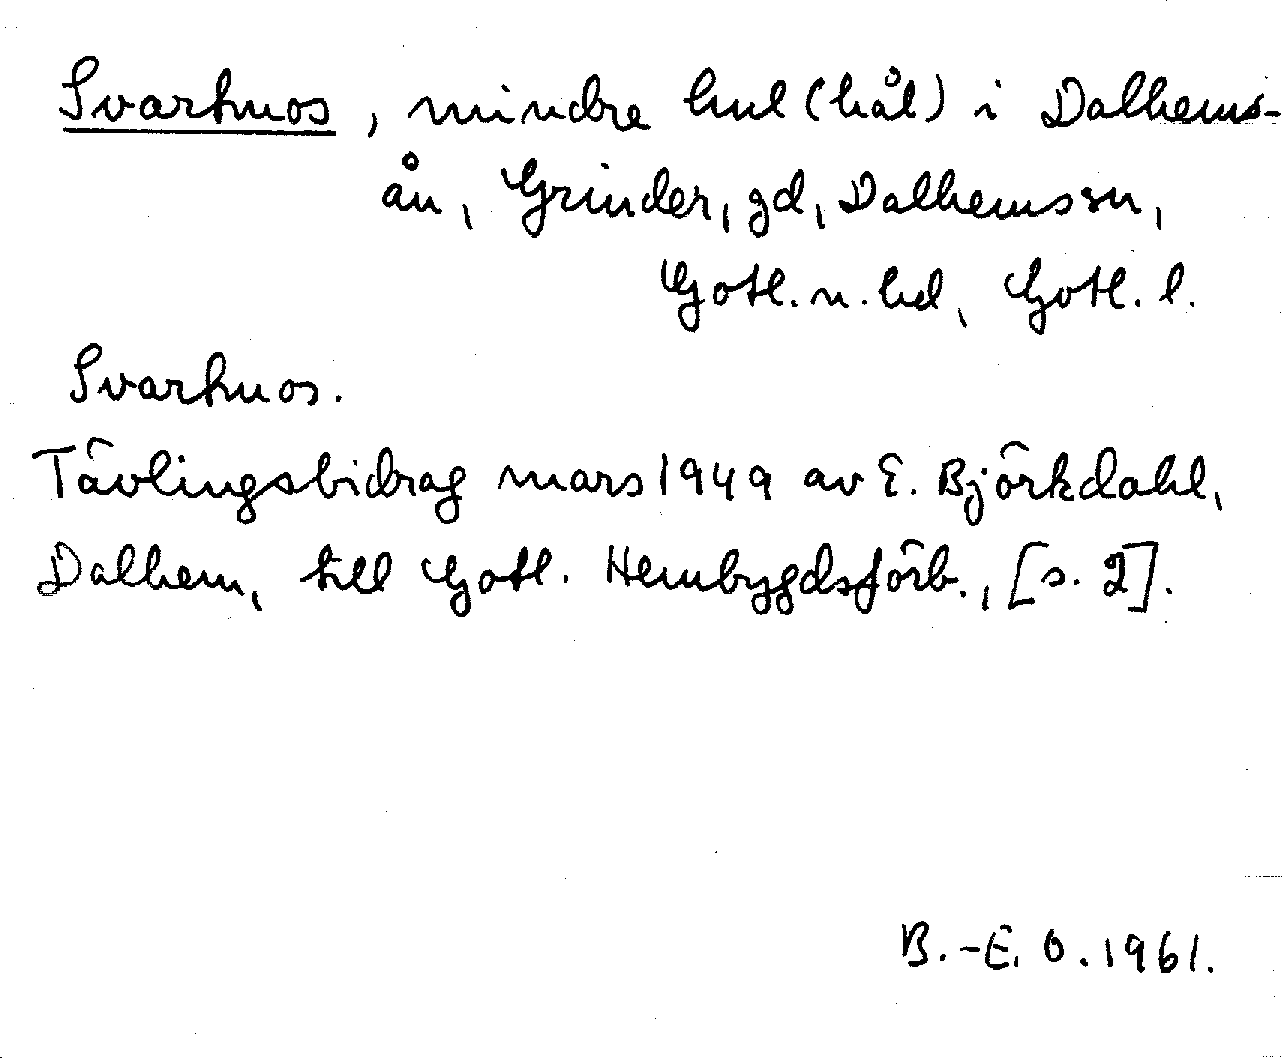 Svarhuos, mindre hul (hål) i Dalhems-
ån, Grinder, gd, Dalhems sn,
Gotl. n. hd, Gotl. l.
Svarhuos.
Tävlingsbidrag mars 1949 av E. Björkdahl,
Dalhem, till Gotl. Hembygdsförb., [s. 2].
B.-E. O. 1961.